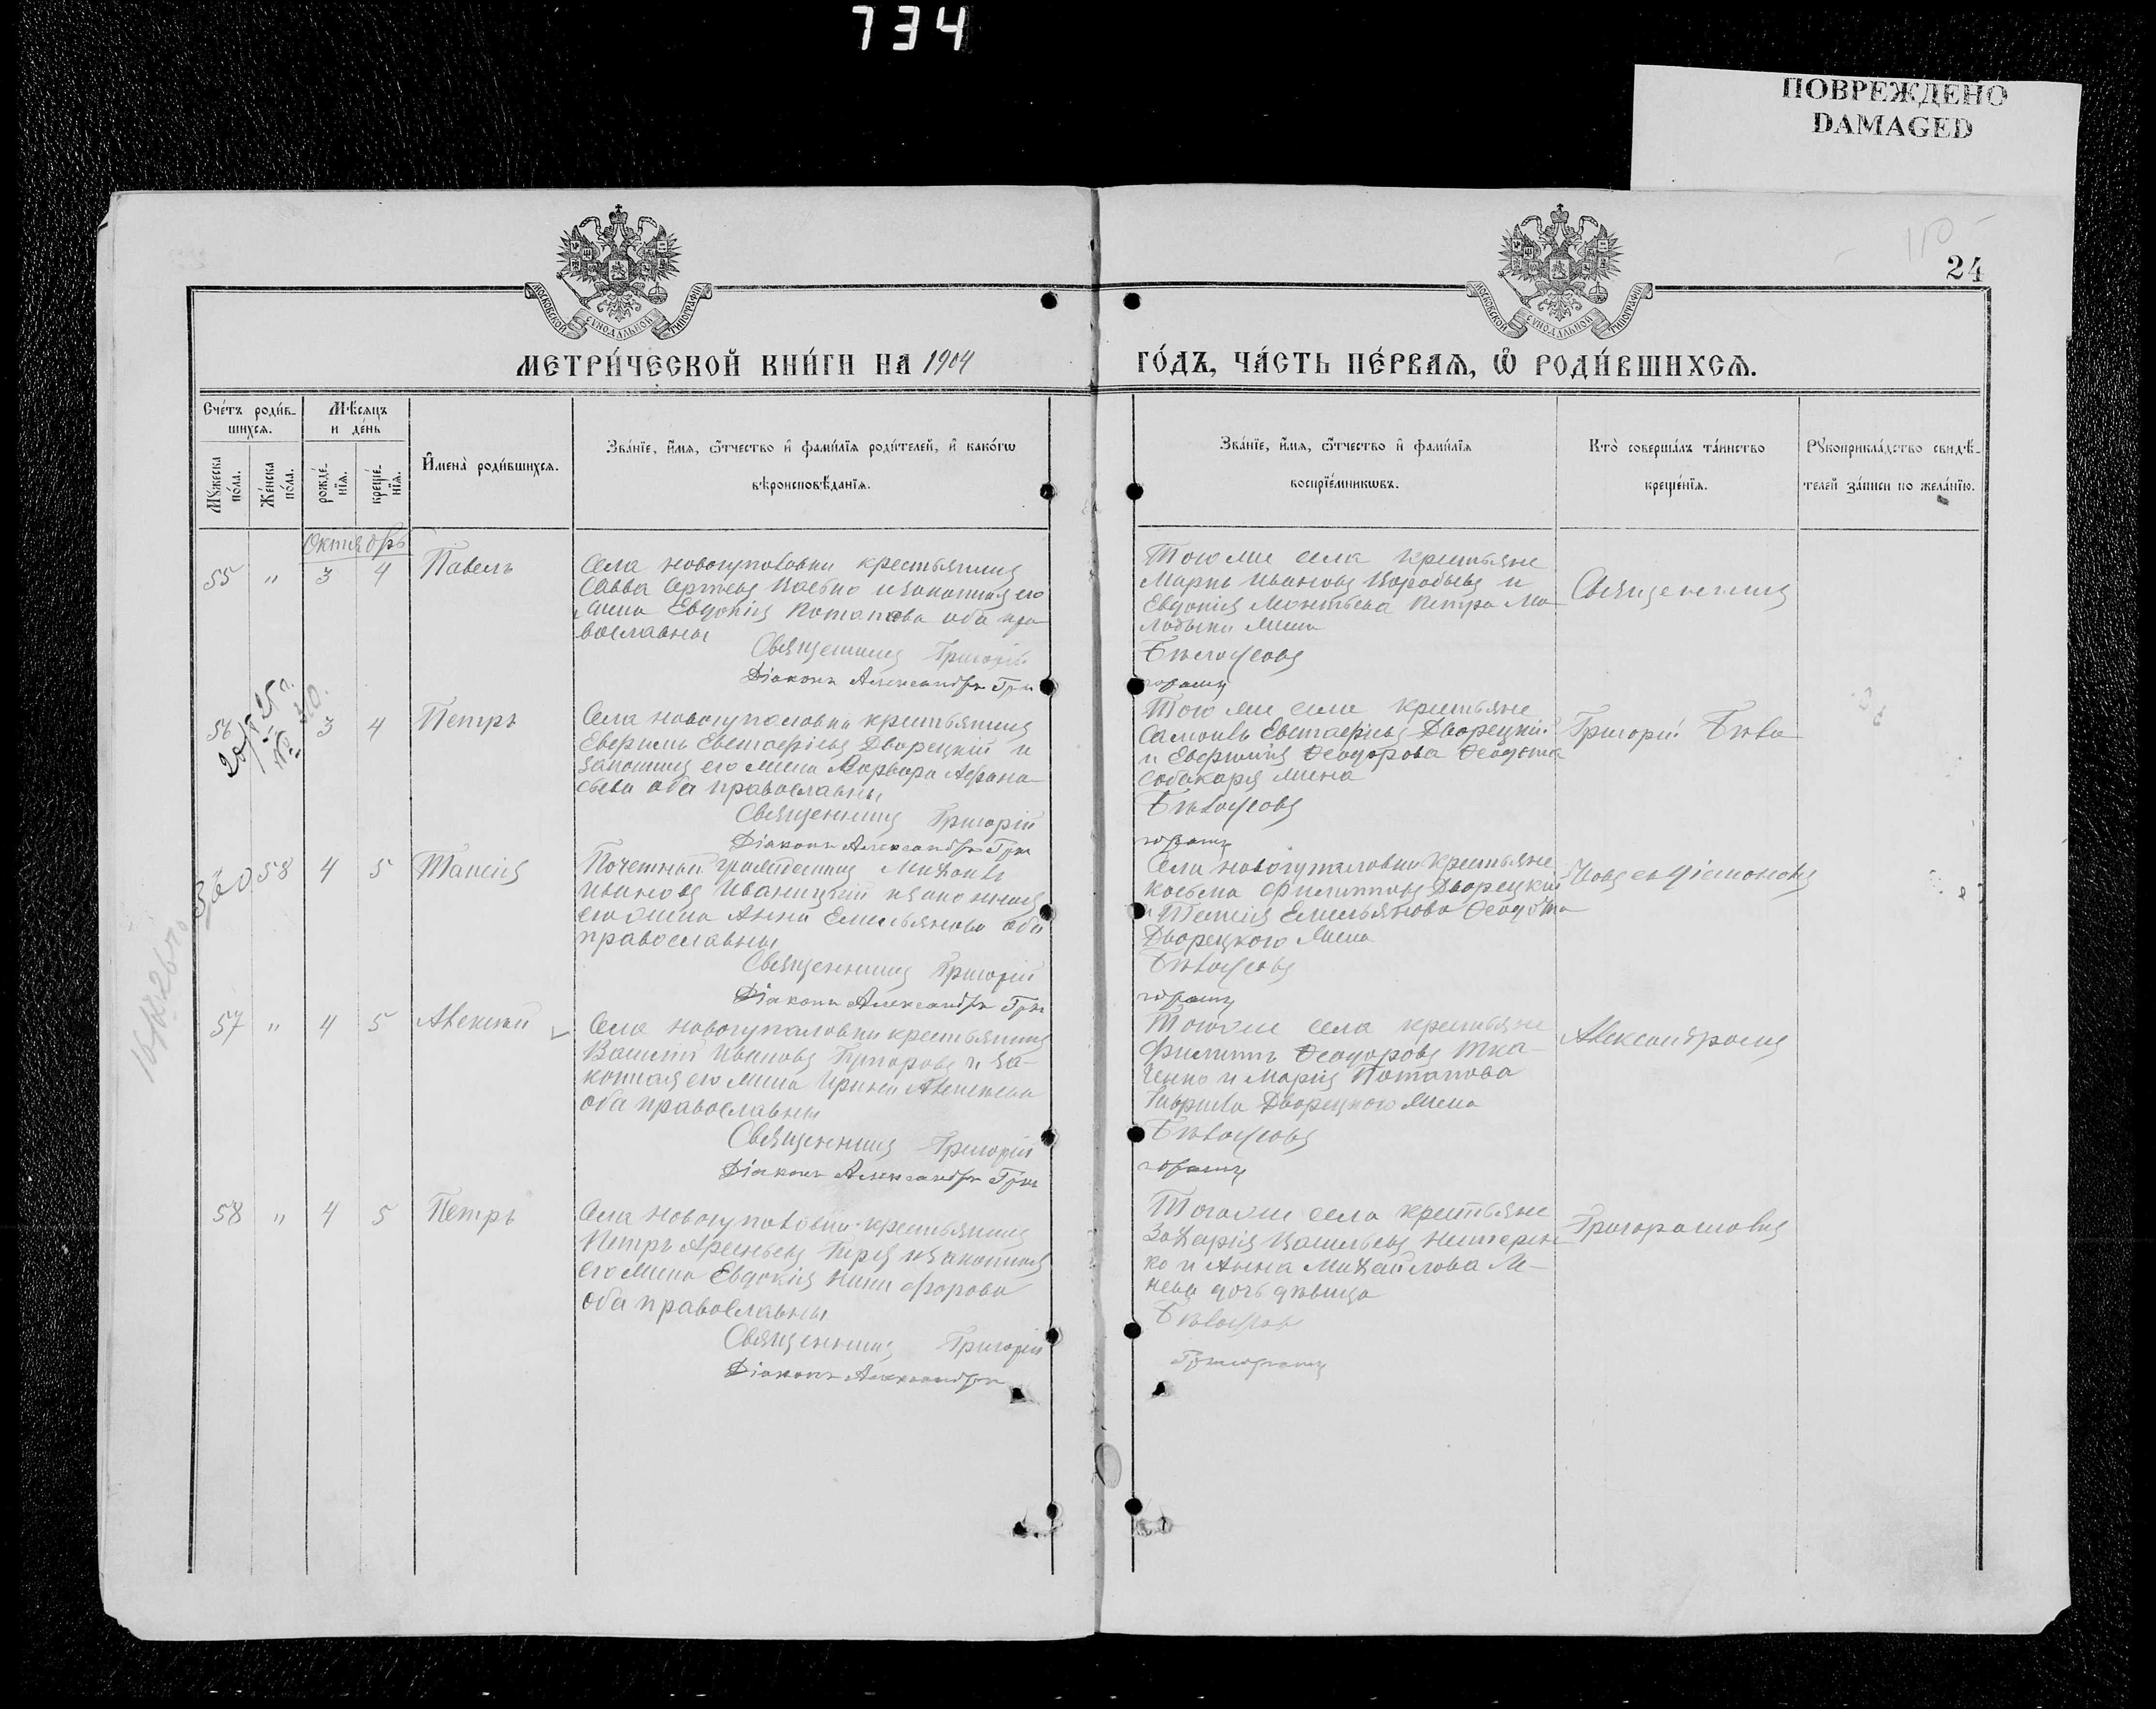 734
ПОВРЕЖДЕНО
DAMAGED
24
МОСКОВСКОЙ СѴНОДАЛЬНОЙ ТИПОГРАФІИ
МОСКОВСКОЙ СѴНОДАЛЬНОЙ ТИПОГРАФІИ
МЕТРИ́ЧЕСКОЙ КНИ́ГИ НА 1904
ГО́ДЪ, ЧА́СТЬ ПЕ́РВАѦ, Ѡ҆ РОДИ́ВШИХСѦ.
Сче́тъ роди́в-
шихсѧ.
Мѣ́сѧцъ
и де́нь
Мꙋжеска
по́ла.
Же́нска
по́ла.
рожде́-
нїѧ.
креще́-
нїѧ.
И҆мена̀ роди́вшихсѧ.
Зва́нїе, и҆́мѧ, ѻ҆́тчество и҆ фами́лїѧ роди́телей, и҆ како́гѡ
вѣроисповѣ́данїѧ.
Зва́нїе, и҆́мѧ, ѻ҆́тчество и҆ фами́лїѧ
воспрїе́мникѡвъ.
Кто̀ соверша́лъ та́инство
креще́нїѧ.
Рꙋкоприкла́дство свидѣ́-
телей за́писи по жела́нїю.
Октябрь
55 " 3 4 Павелъ
Села Новогуполовки крестьянинъ
Савва Сергеевъ и законная его
жена Евдокія Потапова оба пра
вославны
Священникъ Григорій
Діаконъ Александръ Гри
Того же села крестьяне
Маркъ Ивановъ Воробьевъ и
Евдокія Леонтьева Петра Мо
лодыки жена
Бѣлоусовъ
горашъ
Священникъ
56 3 4 Петръ
Села Новогуполовки крестьянинъ
Евстафіевъ Дворецкій и
законная его жена Варвара Афана-
сьева оба православны
Священникъ Григорій
Діаконъ Александръ Гри
Того же села крестьяне
Самоилъ Евстафіевъ Дворецкій
и Евфимія Ѳеодорова Ѳеодота
Собакаря жена
Бѣлоусовъ
горашъ
Григорій Бѣло
58 4 5 Таисія
Почетный гражданинъ Михаилъ
Ивановъ Иваницкій и законная
его жена Анна Емельянова оба
православны
Священникъ Григорій
Діаконъ Александръ Гри
Села Новогуполовки крестьяне
Косьма Филипповъ Дворецкій
и Емельянова Ѳеодота
Дворецкого жена
Бѣлоусовъ
горашъ
усовъ съ діакономъ
57 " 4 5 Алексѣй
Села Новогуполовки крестьянинъ
Ивановъ и за-
конная его жена Ирина Алексѣева
оба православны
Священникъ Григорій
Діаконъ Александръ Гри
Того же села крестьяне
Филиппъ Ѳеодоровъ Тка-
ченко и Марія Потапова
Гавріила Дворецкого жена
Бѣлоусовъ
горашъ
Александромъ
58 " 4 5 Петръ
Села Новогуполовки крестьянинъ
Петръ Арсеньевъ и законная
его жена Евдокія Никифорова
оба православны
Священникъ Григорій
Діаконъ Александръ
Того же села крестьяне
Захарія Васильевъ Нестерен
ко и Анна Михайлова
дочь дѣвица
Бѣлоусовъ
Григорашъ
Григорашовымъ